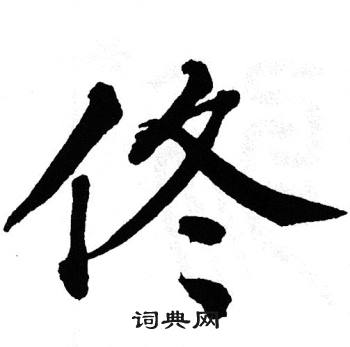 佟
词典网